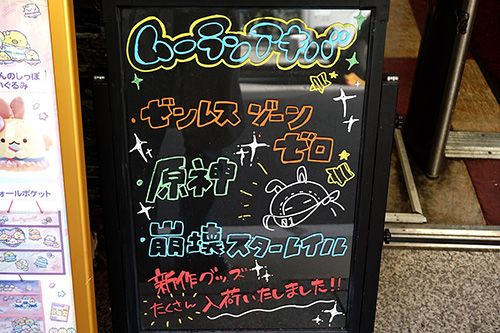 ムーランアキバ
ゼンレス ゾーン
ゼロ
原神
崩壊スターレイル
新作グッズ
たくさん 入荷いたしました!!
んのしっぽ
いぐるみ
ォールポケット